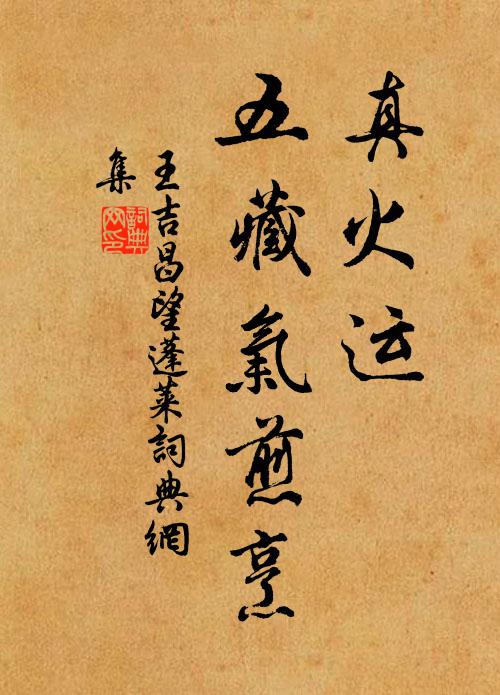 真火运
五藏氣煎烹
王吉昌望蓬莱詞典網
集
詞典
网印